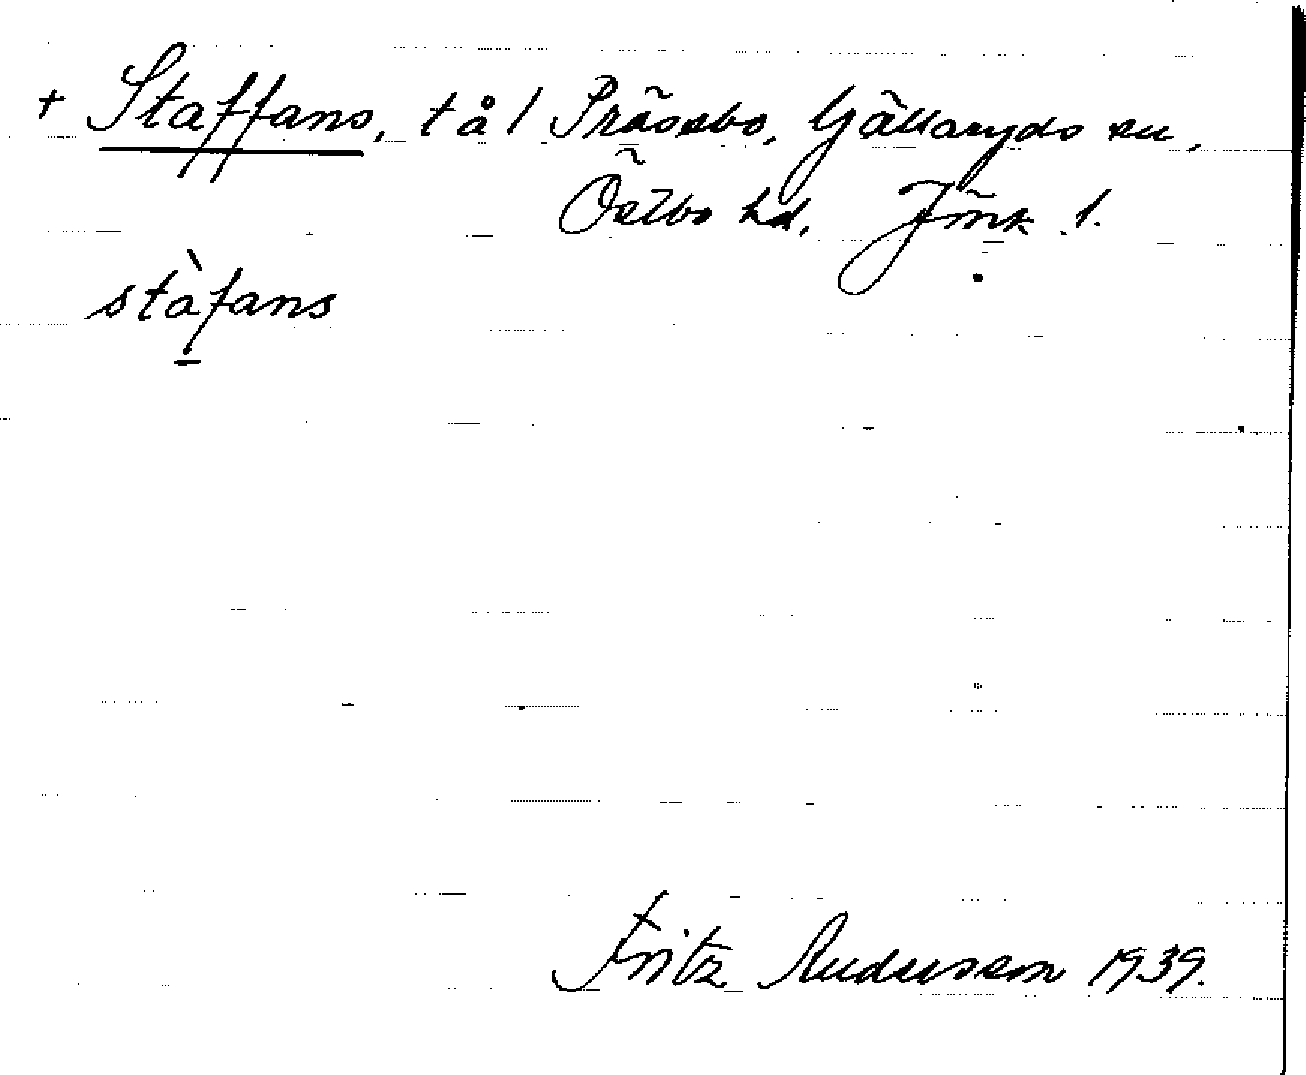 + Staffans, t å / Prässbo, Gällaryds sn,
Östbo hd, Jönk. l.
stàfans
Fritz Andersson 1939.